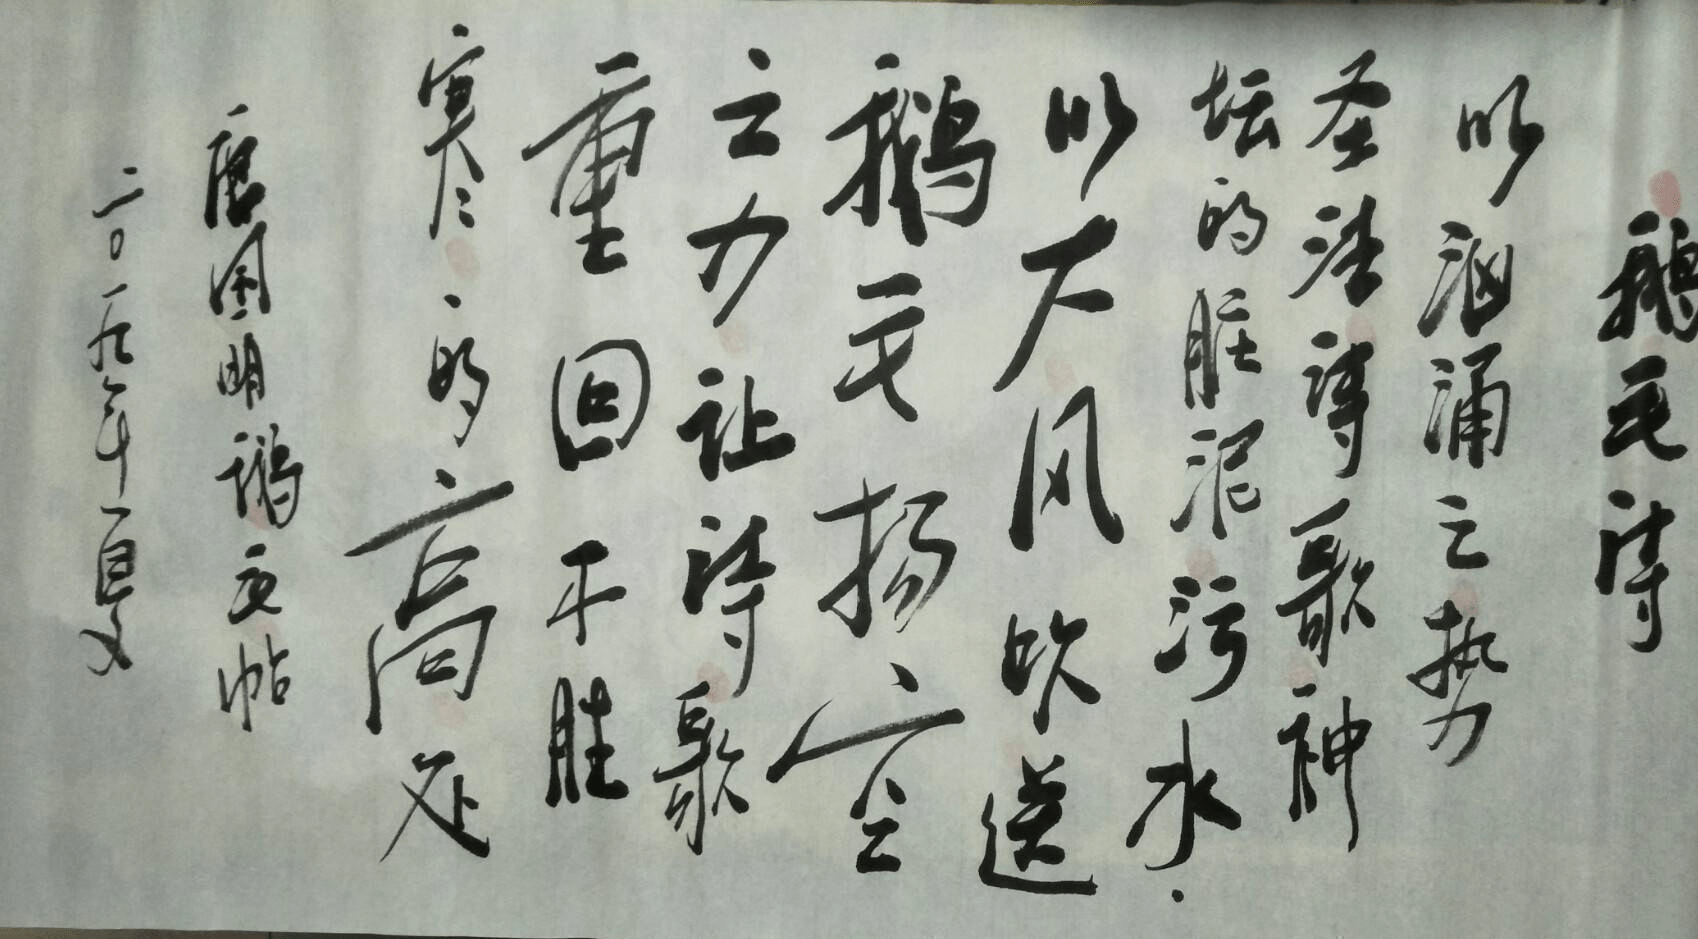 鹅毛诗
以汹涌之势
圣洁诗歌神
坛的脏泥污水
以大风吹送
鹅毛扬空
之力让诗歌
重回不胜
寒的高处
唐国明鹅毛帖
二0一九年夏